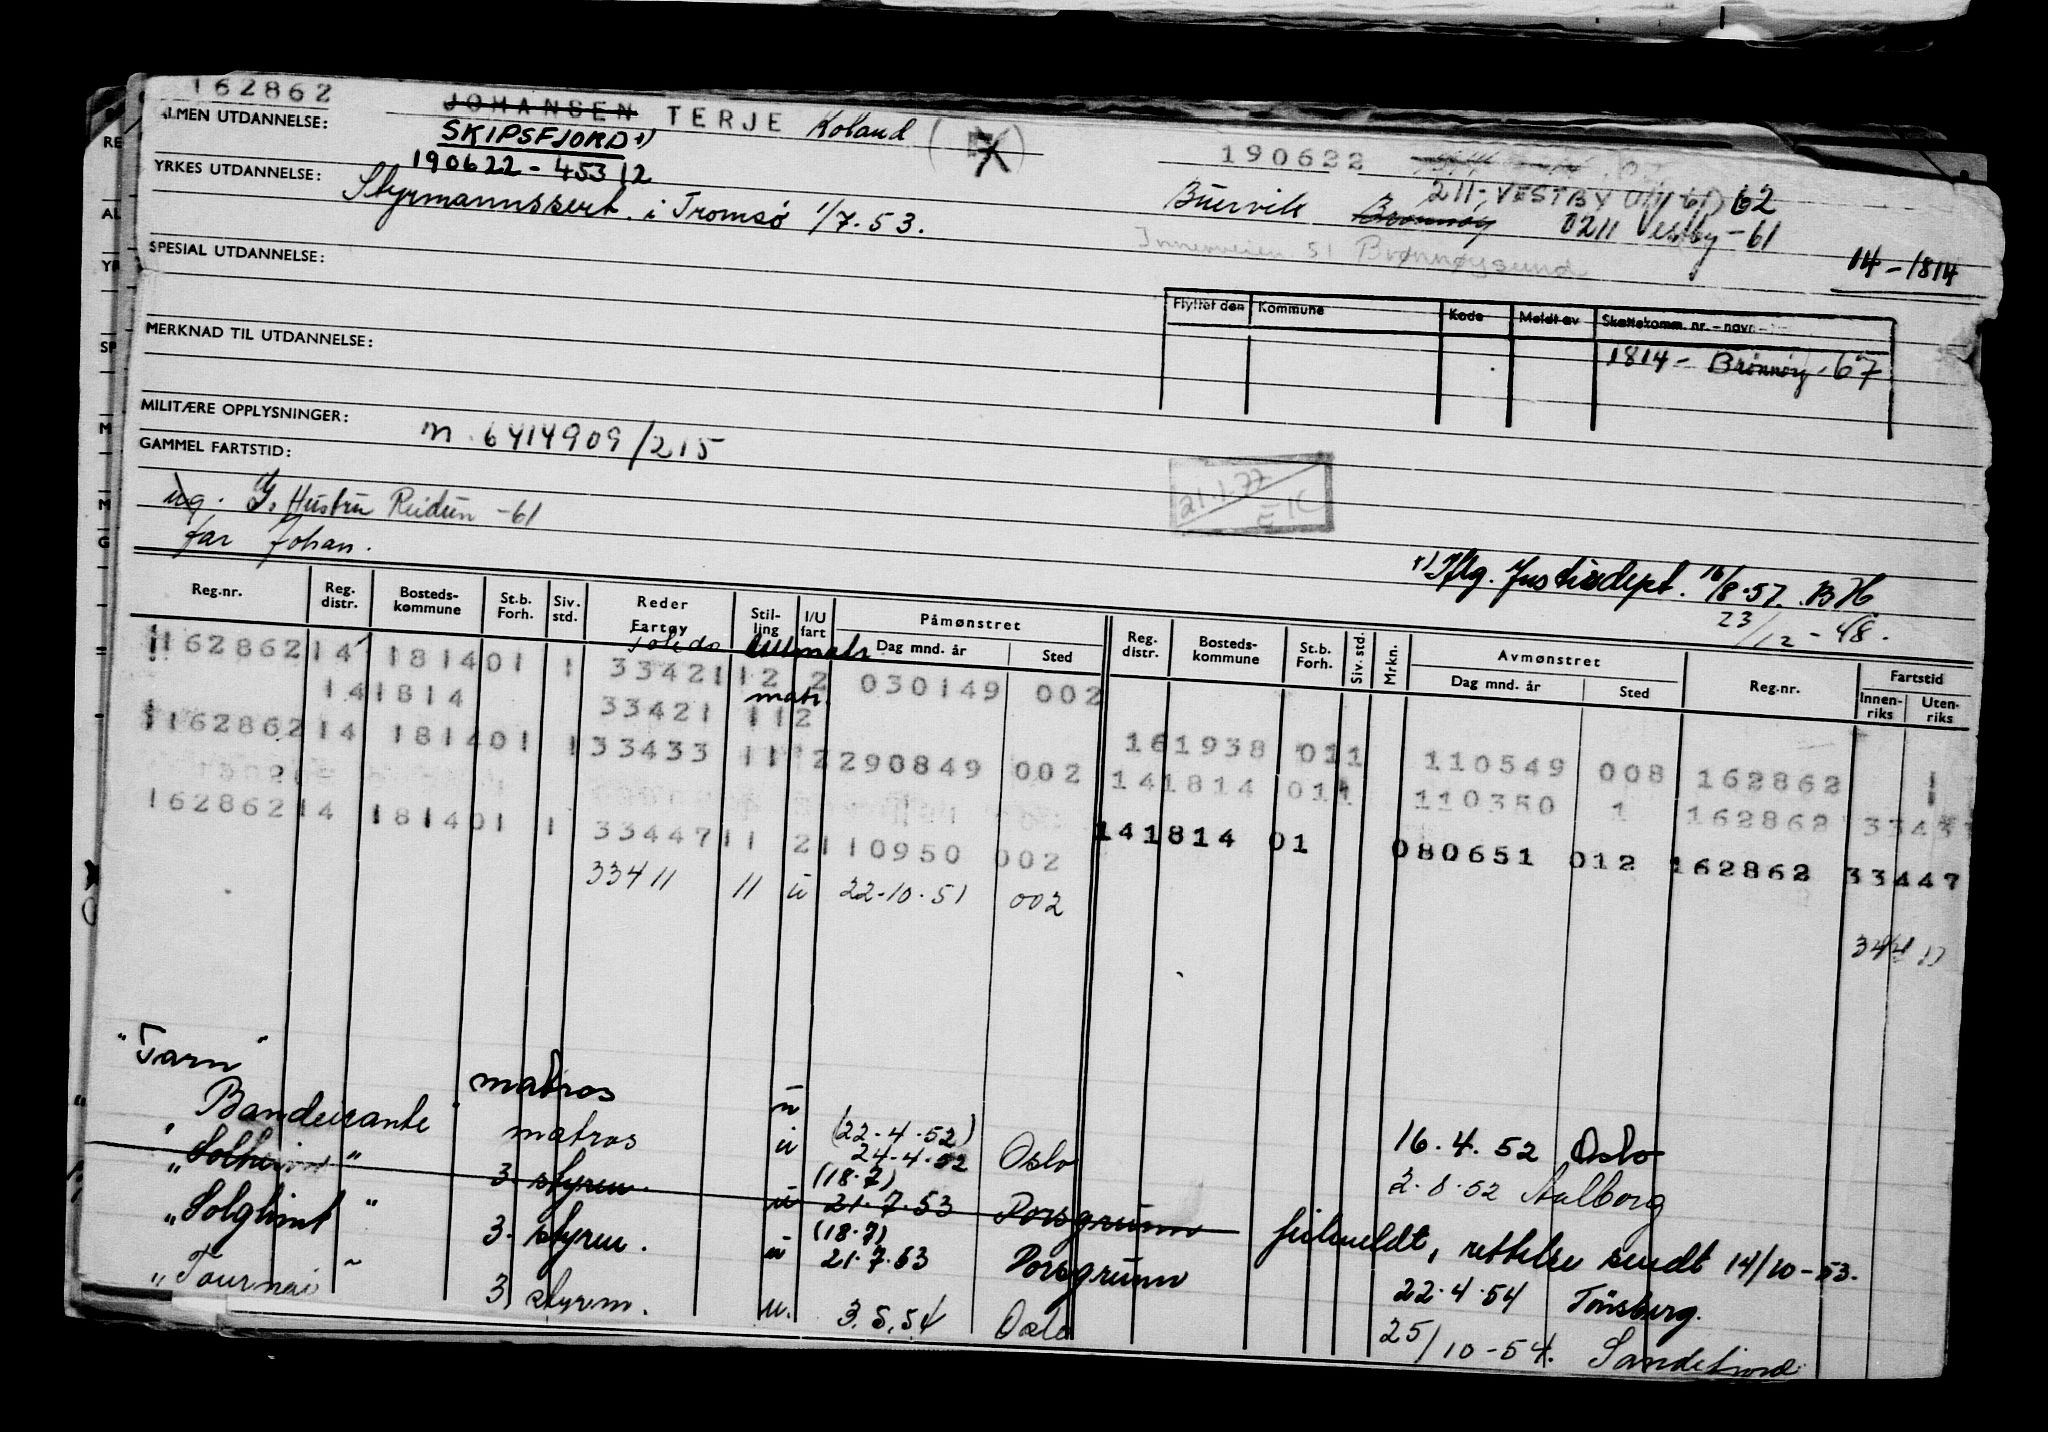 162862
JOHANSEN TERJE Roland ( )
ALMEN UTDANNELSE:
SKIPSFJORD x)
190622 - 45312
190622
YRKES UTDANNELSE: Styrmannssert. i Tromsø 1/7.53.
211, VESTBY (1/1 61) 62
Buervik Brønnøy 0211 Vestby -61
Innerveien 51 Brønnøysund
14-1814
SPESIAL UTDANNELSE:
Flyttet den Kommune Kode Meldt av Skattekomm. nr. - navn
1814 - Brønnøy - 67
MERKNAD TIL UTDANNELSE:
MILITÆRE OPPLYSNINGER: m. 6414909/215
GAMMEL FARTSTID:
21.1.77 EK
ug. G. Hustru Reidun -61
far Johan.
x) Iflg. Justisdept. 16/8.57. BH
23/12 - 48.
Reg.nr. Reg. distr. Bosteds-kommune St.b. Forh. Siv. std. Reder Fartøy Stil-ling I/U fart Påmønstret Dag mnd. år Sted Reg. distr. Bosteds-kommune St.b. Forh. Siv. std. Mrkn. Avmønstret Dag mnd. år Sted Reg.nr. Fartstid Innen-riks Uten-riks
Toledo
162862 14 1814 01 1 33421 12 2 030149 002
14 1814 33421 matr. 11 2 16 1938 01 1 110549 008 162862 1
162862 14 1814 01 1 33433 11 2 290849 002 14 1814 01 1 110350 1 162862
162862 14 1814 01 1 33447 11 2 110950 002 14 1814 01 080651 012 162862 33447
33411 11 u 22-10.51 002
"Tarn" matros u 16.4.52 Oslo
" Bandeirante " matros u (22.4.52) 24.4.52 Oslo 2.8.52 Aalborg
" " 3. styrm. u (18.7) 21.7.53 Porsgrunn feilmeldt, rettelse sendt 14/10-53.
" Solglimt " 3. styrm. u (18.7) 21.7.53 Porsgrunn 22.4.54 Tönsberg.
" Tournai " 3. styrm. u. 3.5.54 Oslo 25/10-54. Sandefjord